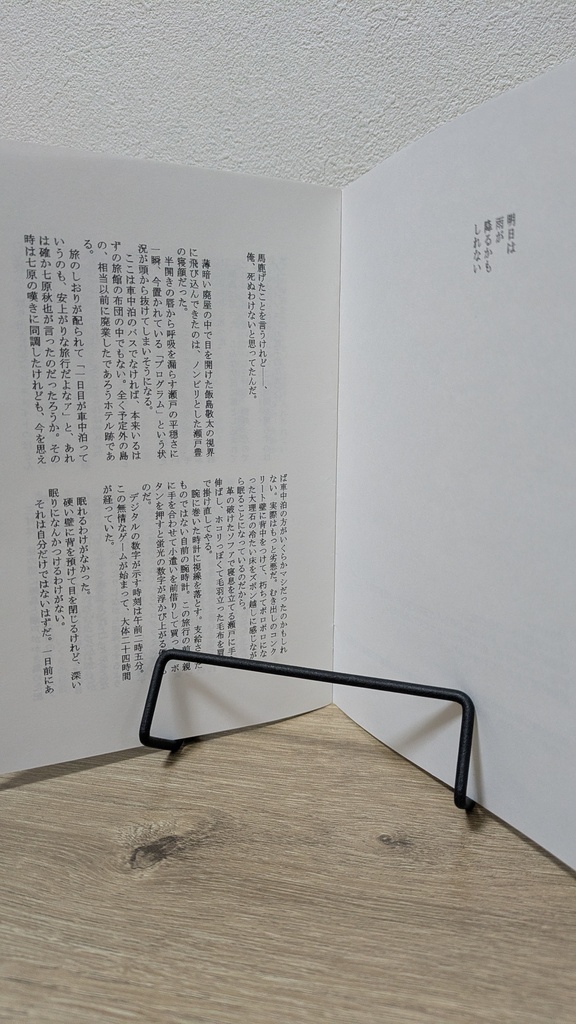 明日は
雨が
降るかも
しれない
馬鹿げたことを言うけれど――、
俺、死ぬわけないと思ってたんだ。
薄暗い廃屋の中で目を開けた飯島敬太の視界
に飛び込んできたのは、ノンビリとした瀬戸豊
の寝顔だった。
半開きの唇から呼吸を漏らす瀬戸の平穏さに
一瞬、今置かれている「プログラム」という状
況が頭から抜けてしまいそうになる。
ここは車中泊のバスでなければ、本来いるは
ずの旅館の布団の中でもない。全く予定外の島
の、相当以前に廃業したであろうホテル跡であ
る。
旅のしおりが配られて「一日目が車中泊って
いうのも、安上がりな旅行だよなァ」と、あれ
は確か七原秋也が言ったのだったろうか。その
時は七原の嘆きに同調したけれども、今を思え
ば車中泊の方がいくらかマシだったのかもしれ
ない。実際はもっと劣悪だ。むき出しのコンク
リート壁に背中をつけて、朽ちてボロボロにな
った大理石の冷たい床をズボン越しに感じなが
ら眠ることになっているのだから。
革の破けたソファで寝息を立てる瀬戸に手
伸ばし、ホコリっぽくて毛羽立った毛布を肩
で掛け直してやる。
腕に巻いた時計に視線を落とす。支給され
ものではない自前の腕時計。この旅行の前
に手を合わせて小遣いを前借りして買っ
タンを押すと蛍光の数字が浮かび上がる
のだ。
デジタルの数字が示す時刻は午前二時五分。
この無情なゲームが始まって、大体二十四時間
が経っていた。
眠れるわけがなかった。
硬い壁に背を預けて目を閉じるけれど、深い
眠りになんかつけるわけがない。
それは自分だけではないはずだ。一日前にあ